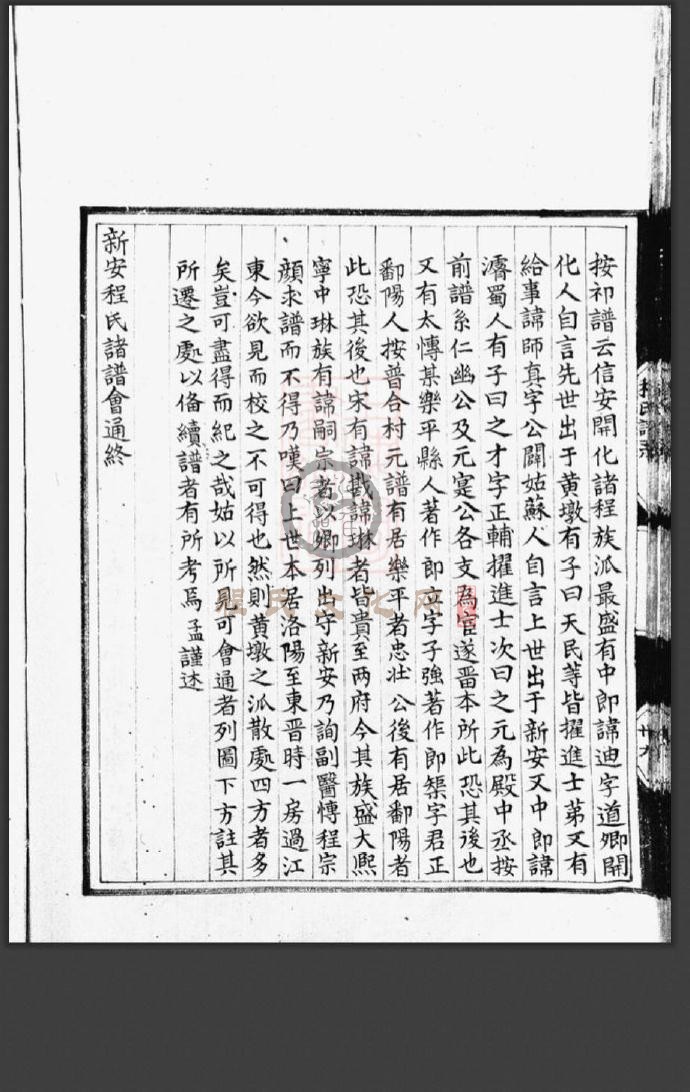 按初譜云信安開化諸程族派最盛有中郎諱迪字道卿開
化人自言先世出于黃墩有子曰天民等皆擢進士第又有
給事諱師真字公闢姑蘇人自言上世出于新安又中郎諱
濬蜀人有子曰之才字正輔擢進士次曰之元為殿中丞按
前譜系仁幽公及元寔公各支為宦遂晋本所此恐其後也
又有太慱某樂平縣人著作郎立字子強著作郎榘字君正
鄱陽人按普合村元譜有居樂平者忠壯公後有居鄱陽者
此恐其後也宋有諱戡諱琳者皆貴至两府今其族盛大熈
寧中琳族有諱嗣宗者以卿列出守新安乃詢副醫慱程宗
顔求譜而不得乃嘆曰上世本居洛陽至東晋時一房過江
東今欲見而校之不可得也然則黃墩之派散處四方者多
矣豈可盡得而紀之哉姑以所見可會通者列圖下方註其
所遷之處以俻續譜者有所考焉孟謹述
新安程氏諸譜會通終
程氏譜系
廿九